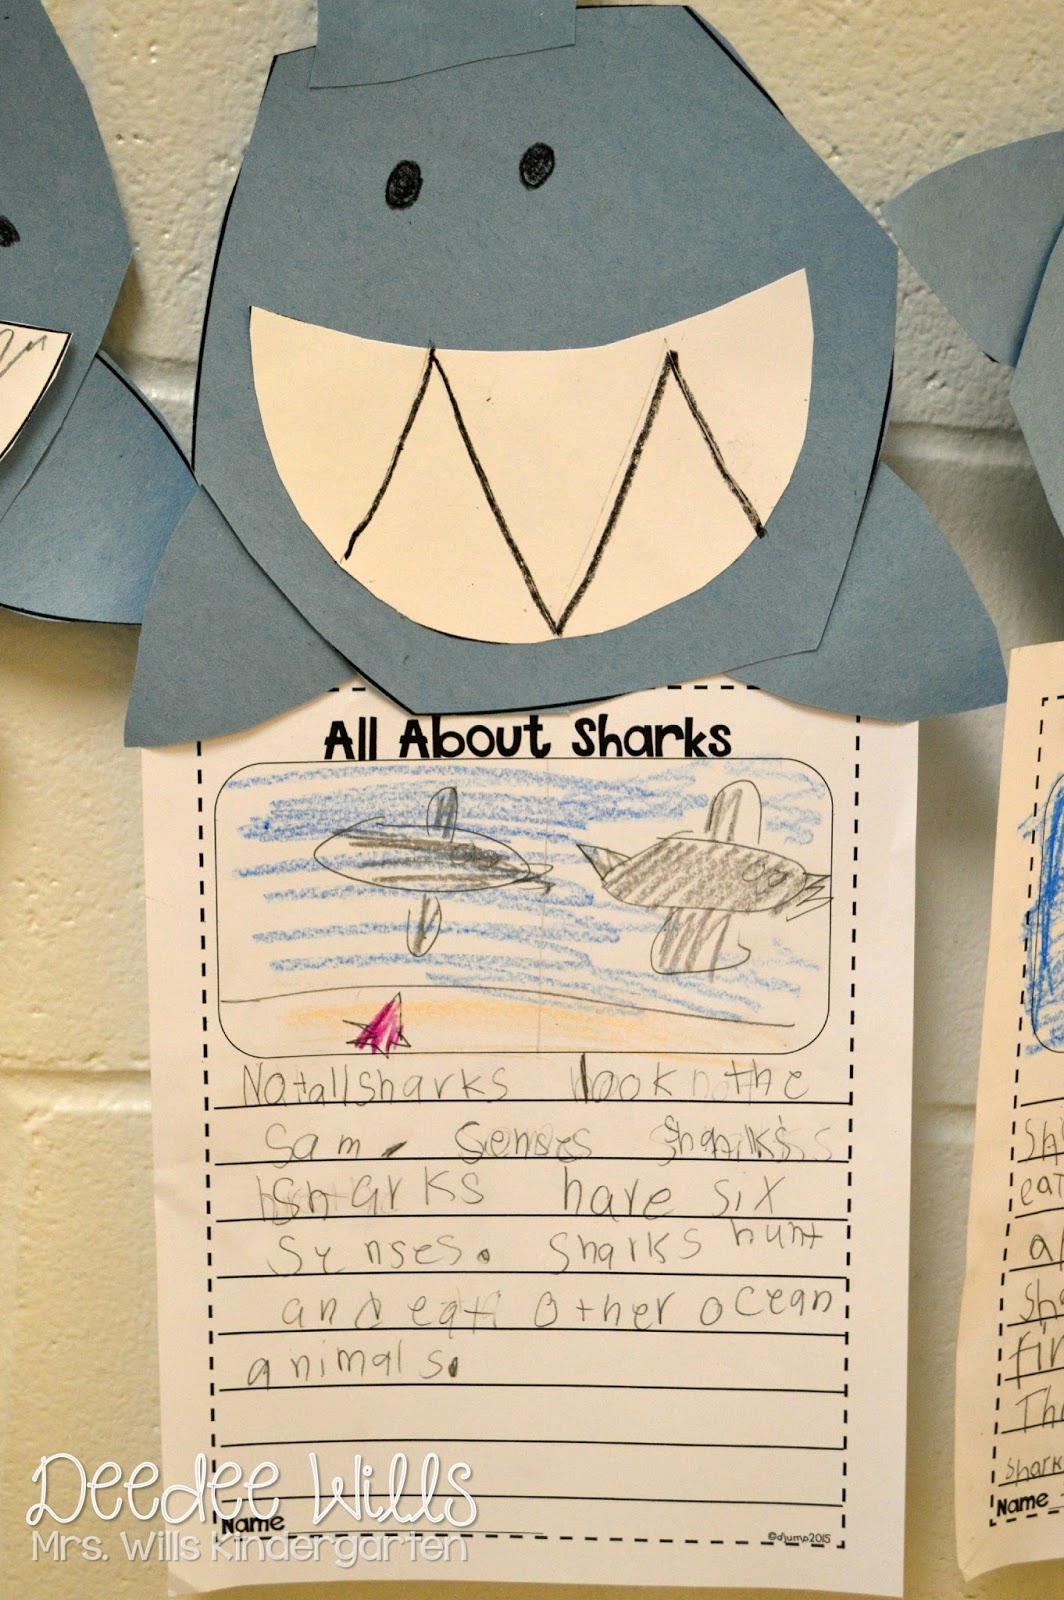 All About Sharks
Not all sharks look the
Sam. Senses Sharks
Sharks have six
Senses. Sharks hunt
and eat other ocean
animals.
Name
©djump2015
Deedee Wills
Mrs. Wills Kindergarten
eat
Name